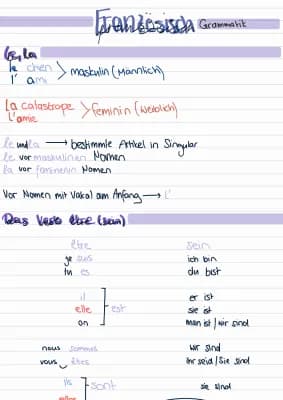 Französisch Grammatik
le, la
le chen
l' ami
maskulin (Männlich)
la catastrope
l'amie
feminin (weiblich)
le und la → bestimmte Artikel in Singular
le vor maskulinen Nomen
la vor femininen Nomen
Vor Nomen mit Vokal am Anfang → l'
Das Verb être (sein)
être sein
je suis ich bin
tu es du bist
il er ist
elle est sie ist
on man ist / wir sind
nous sommes wir sind
vous êtes ihr seid / Sie sind
ils sont sie sind
elles